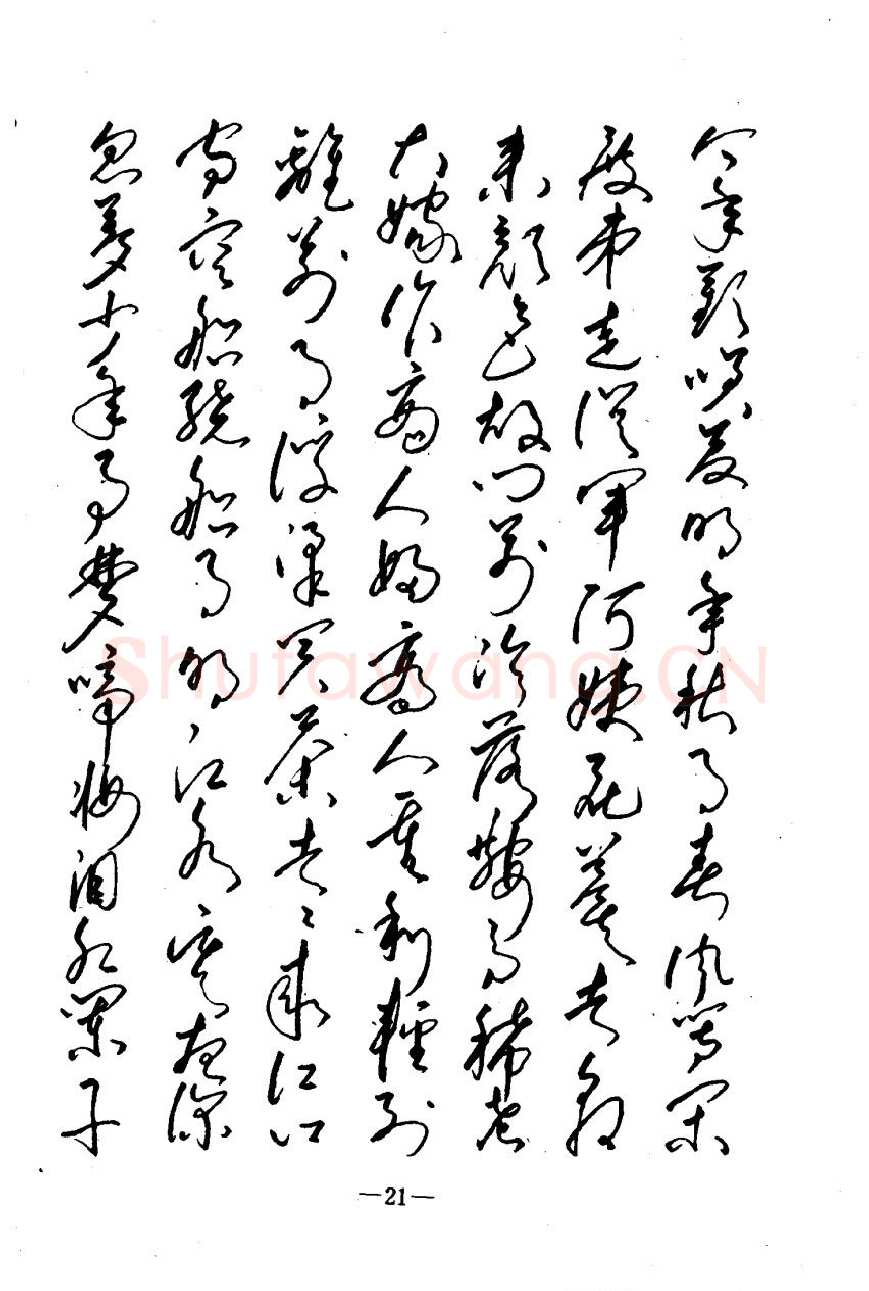 今年歡笑复明年秋月春風等閑
度弟走從軍阿姨死暮去朝
來顏色故門前冷落鞍馬稀老
大嫁作商人婦商人重利輕別
離前月浮梁買茶去々來江口
守空船繞船月明江水寒夜深
忽夢少年事夢啼妝泪紅闌干
—21—
Shufawang.CN